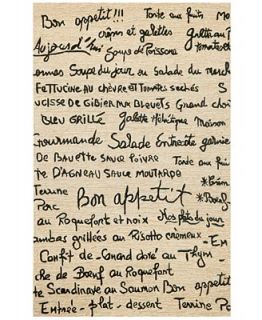 Bon appetit!!! Tarte aux fruits
crêpes et galettes
Aujourd'hui Soups de Poissons
Soupe du jour ou Salade du
Fettucine au chèvre et Tomates sechés
de Gibier aux Bleuets Grand
Bleu Grille Galette Maison
Gourmande Salade Entrecôte garnie
de Bavette Sauce Poivre Tarte aux
d'Agneau Sauce Moutarde
Terrine Bon appetit
Porc Nos plats du jour
au Roquefort et noix
grillées au Risotto crémeux
Confit de Canard doré au Thym
che de Bœuf au Roquefort
te Scandinave au Saumon Bon appetit
Entrée - plat - dessert Terrine